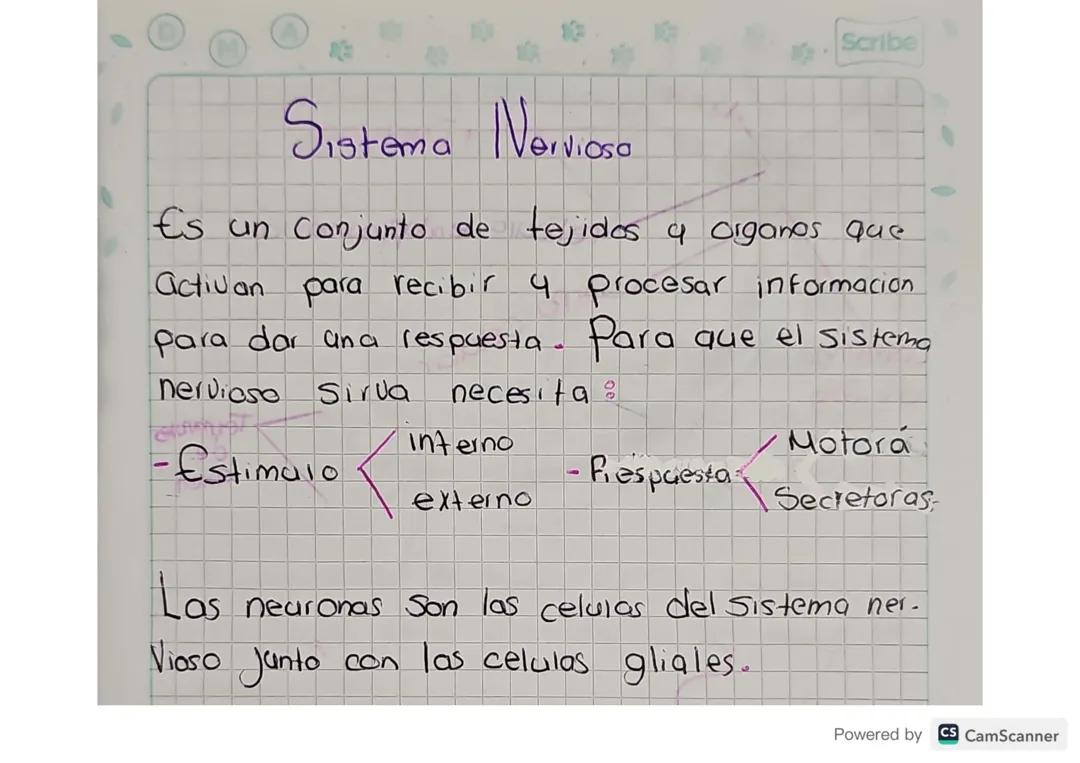 D M A
Scribe
Sistema Nervioso
Es un conjunto de tejidos y organos que
activan para recibir y procesar informacion
para dar una respuesta. Para que el sistema
nervioso sirva necesita:
-Estimulo interno externo
-Respuesta Motora Secretoras
Las neuronas son las celulas del sistema ner-
vioso junto con las celulas gliales.
Powered by CS CamScanner